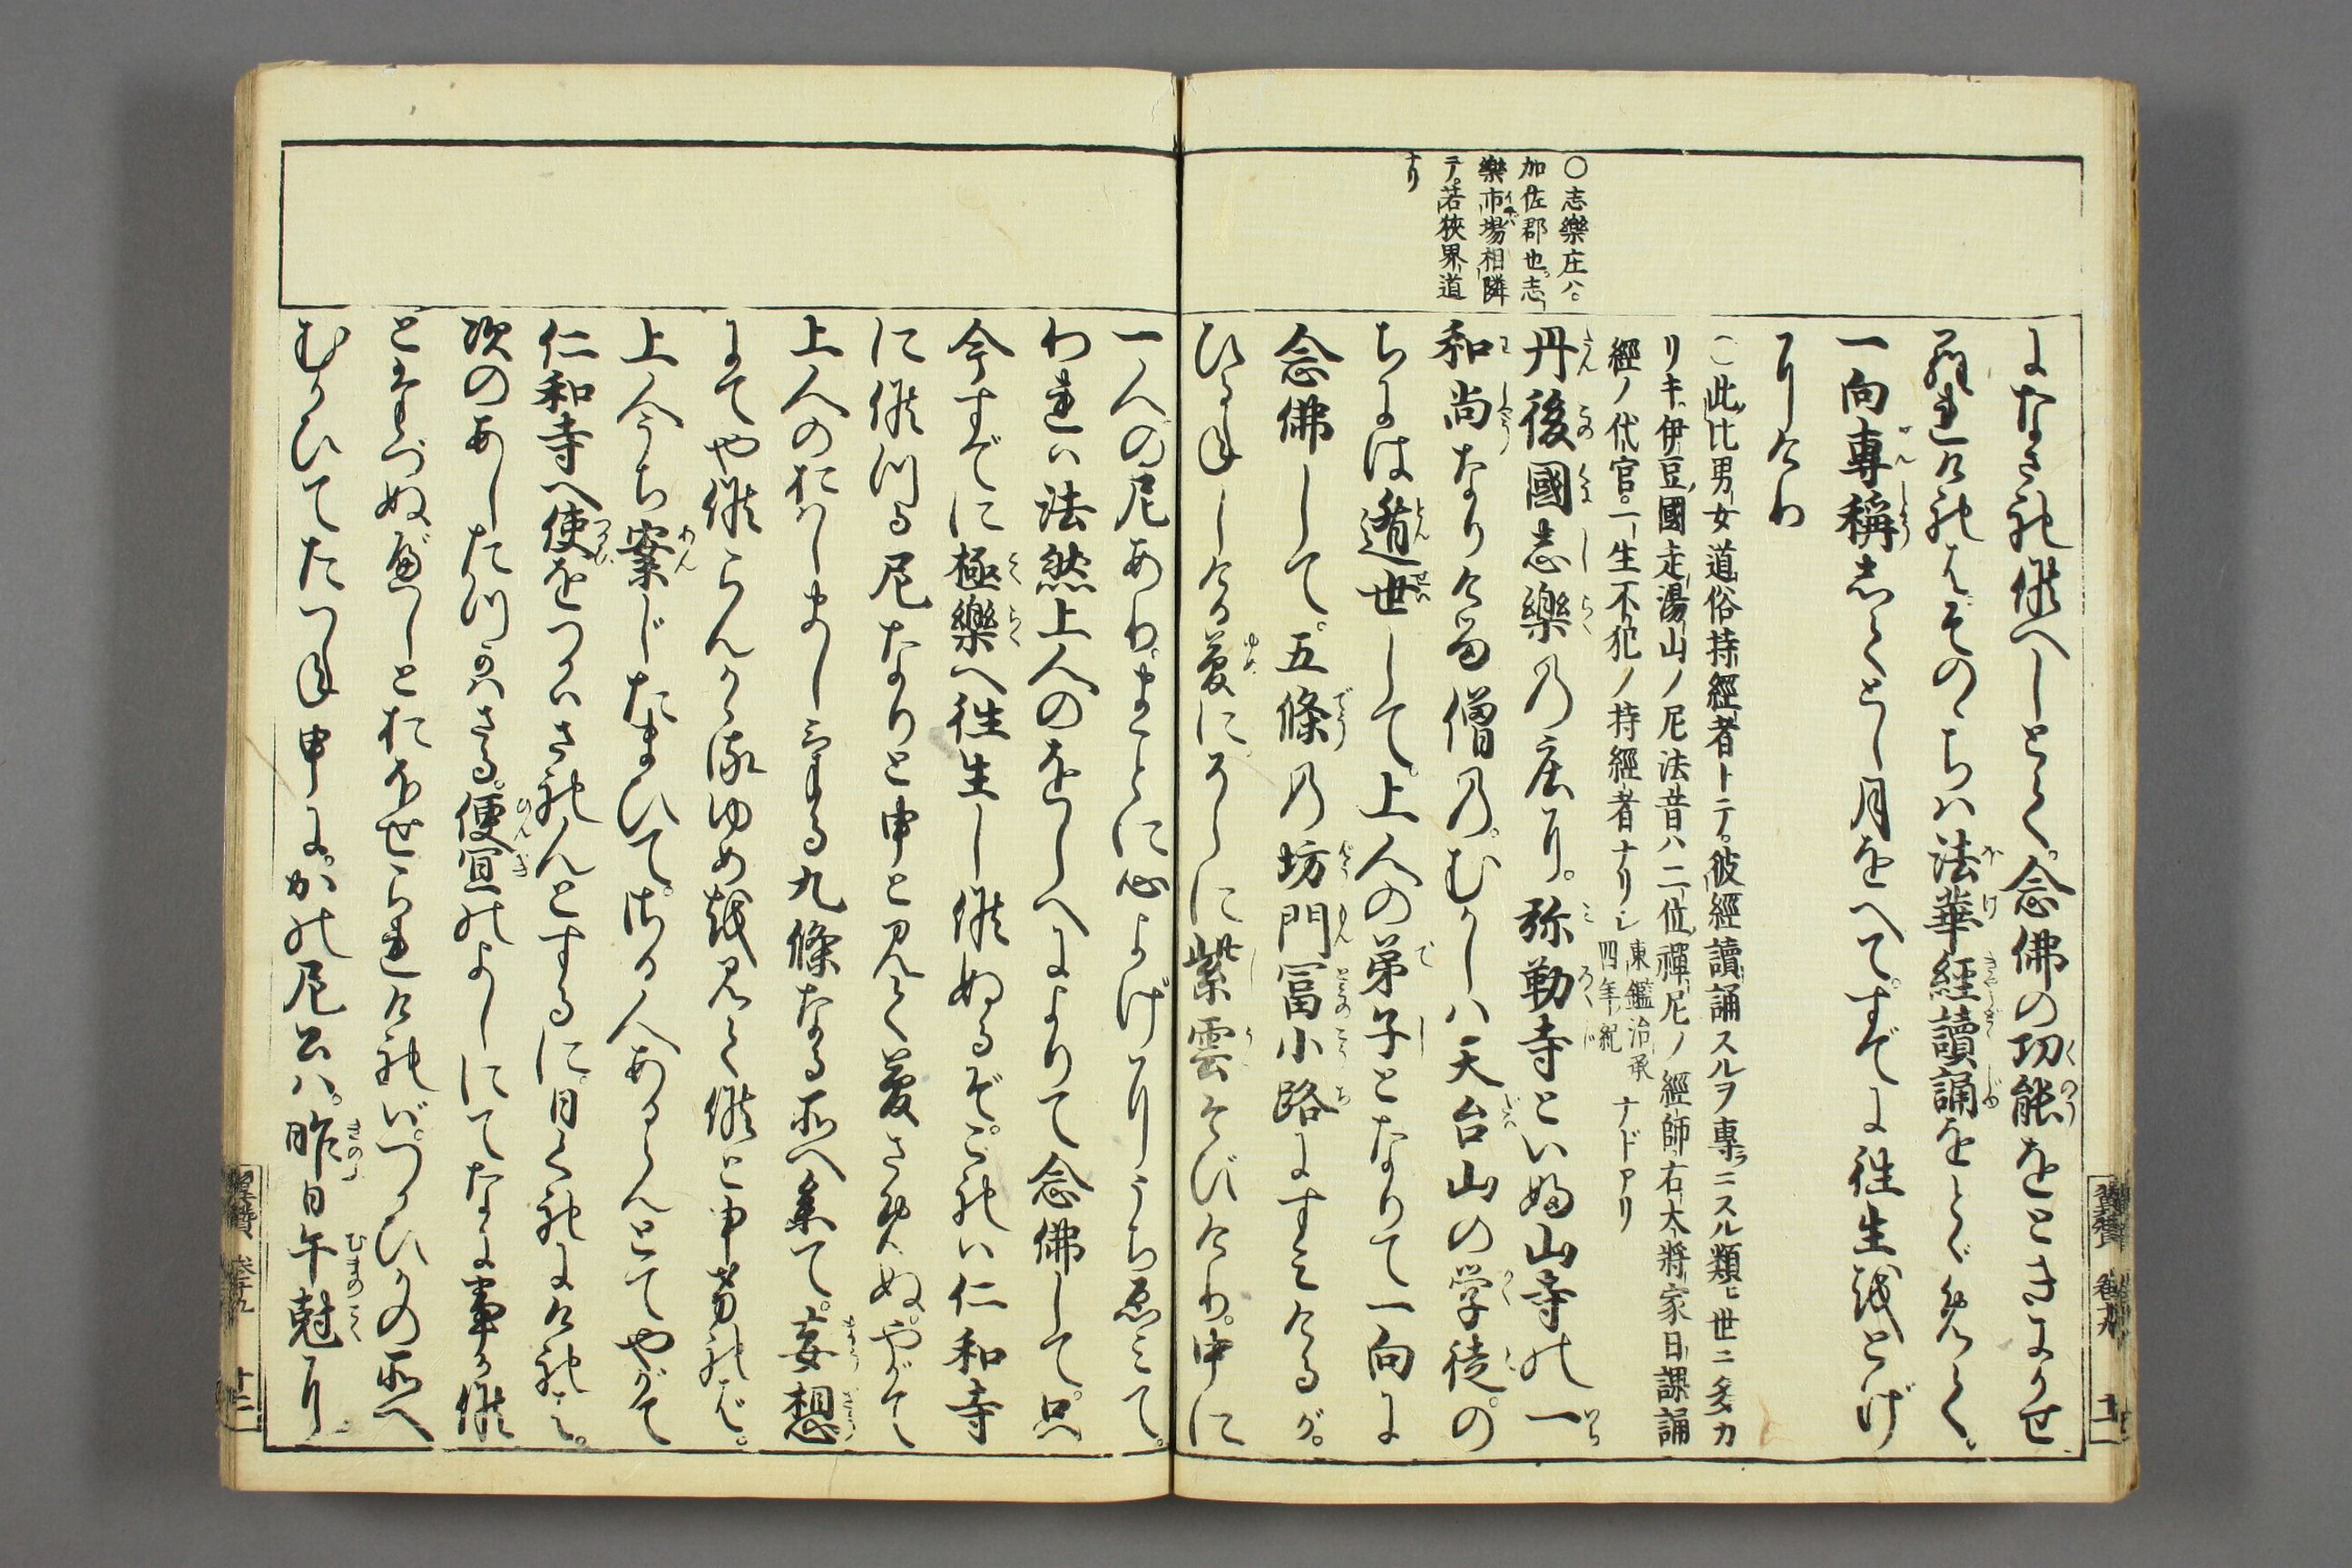 ○志樂庄ハ。
加佐郡也。志
樂市場相隣
テ。若狹界道
ナリ
になされ候へしとて。念佛の功能をときにかせ
られけれはそのゝちハ法華經讀誦をとゞめて。
一向專稱志てとし月をへて。すでに往生をとげ
にけり
此比男女道俗持經者トテ。彼經讀誦スルヲ專ニスル類ヒ世ニ多カ
リキ伊豆國走湯山ノ尼法音ハ二位禪尼ノ經師右大將家日課誦
經ノ代官。一生不犯ノ持經者ナリシ東鑑治承四年紀ナドアリ
丹後國志樂の庄に。弥勒寺といふ山寺の一
和尚なりける僧の。むかしハ天台山の学徒の
ちには遁世して。上人の弟子となりて一向に
念佛して。五條の坊門冨小路にすみけるが。
ひるねしたる夢に。そらに紫雲そびけり。中に
一人の尼あり。まことに心よげにうち忍みて。
われハ法然上人のをしへによりて念佛して。只
今すでに極樂へ往生し候ぬるぞ。これハ仁和寺
に候つる尼なりと申と見て夢さめぬ。やがて
上人のおハしまし ける九條なる所へ参て。妄想
にてや候らんかゝるゆめを見て候と申ければ。
上人うち案じたまひて。さる人あるらんとてやがて
仁和寺へ使をつかハされんとするに。日くれにければ。
次のあした つかハさる。便宜のよしにてなに事か候
とたづぬべしとおほせられければ。つかひかの所へ
むかひてたづね申に。かの尼公ハ。昨日午尅に
翼賛 卷廿五